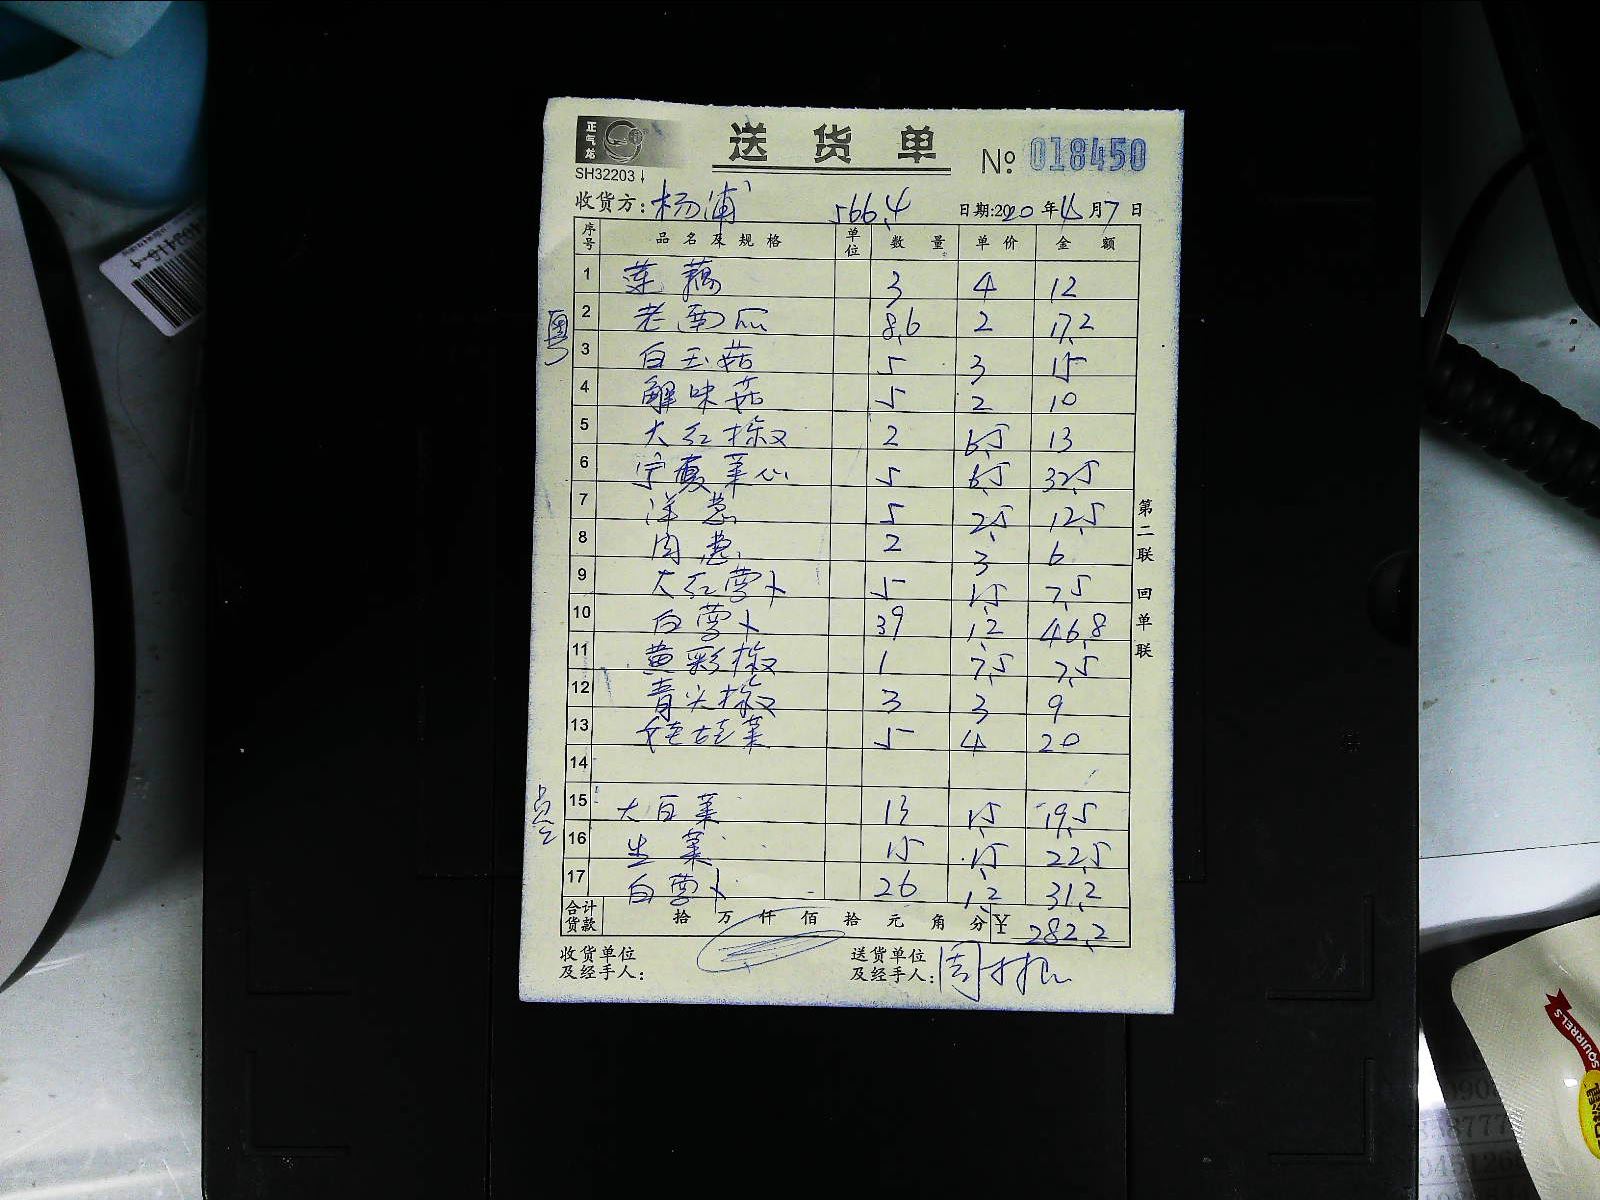 正气龙
送货单
SH32203
№ 018450
收货方：杨浦 566.4 日期:2020年4月7日
序号 品名及规格 单位 数量 单价 金额
粤
1 莲藕 3 4 12
2 老南瓜 8.6 2 17.2
3 白玉菇 5 3 15
4 解味菇 5 2 10
5 大红椒 2 6.5 13
6 宁夏菜心 5 6.5 32.5
7 洋葱 5 2.5 12.5
8 肉葱 2 3 6
9 大红萝卜 5 1.5 7.5
10 白萝卜 39 1.2 46.8
11 黄彩椒 1 7.5 7.5
12 青尖椒 3 3 9
13 娃娃菜 5 4 20
14
15 大白菜 13 1.5 19.5
16 生菜 15 1.5 22.5
17 白萝卜 26 1.2 31.2
合计货款 拾万仟佰拾元角分 ¥ 282.2
收货单位及经手人：
送货单位及经手人：
第二联 回单联
SQUIRRELS